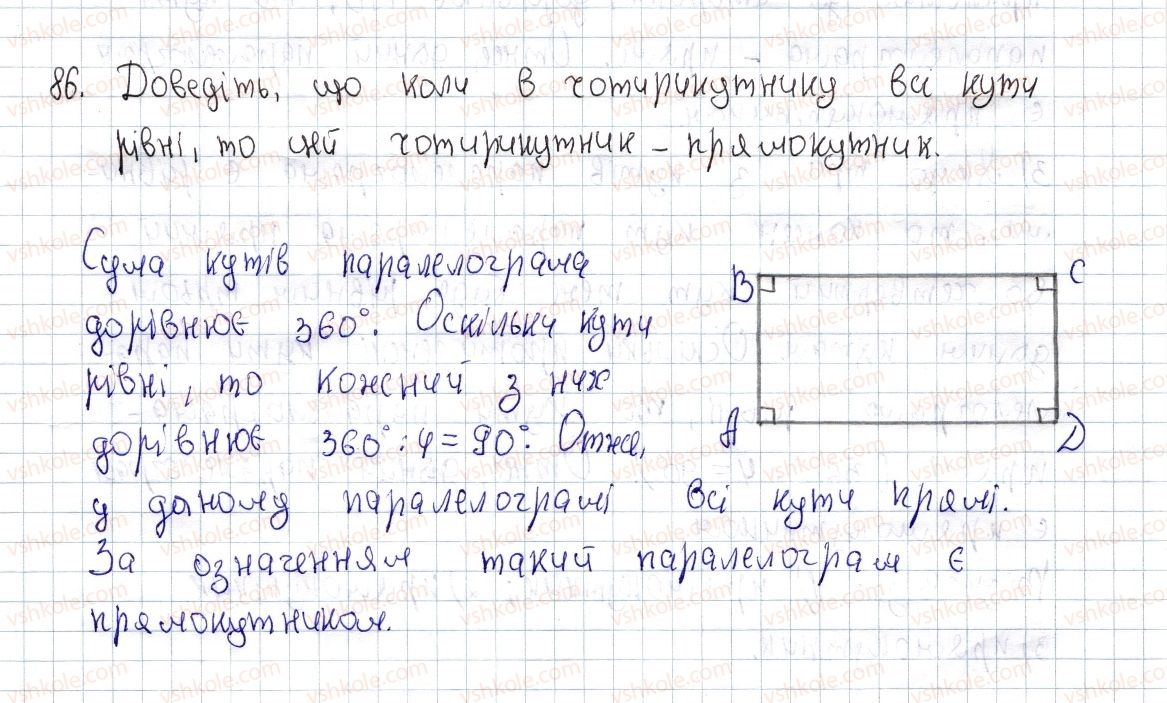 86. Доведіть, що коли в чотирикутнику всі кути
рівні, то цей чотирикутник – прямокутник.
Сума кутів паралелограма
дорівнює 360°. Оскільки кути
рівні, то кожний з них
дорівнює 360° : 4 = 90°. Отже,
у даному паралелограмі всі кути прямі.
За означенням такий паралелограм є
прямокутником.
B C
A D
vshkole.com